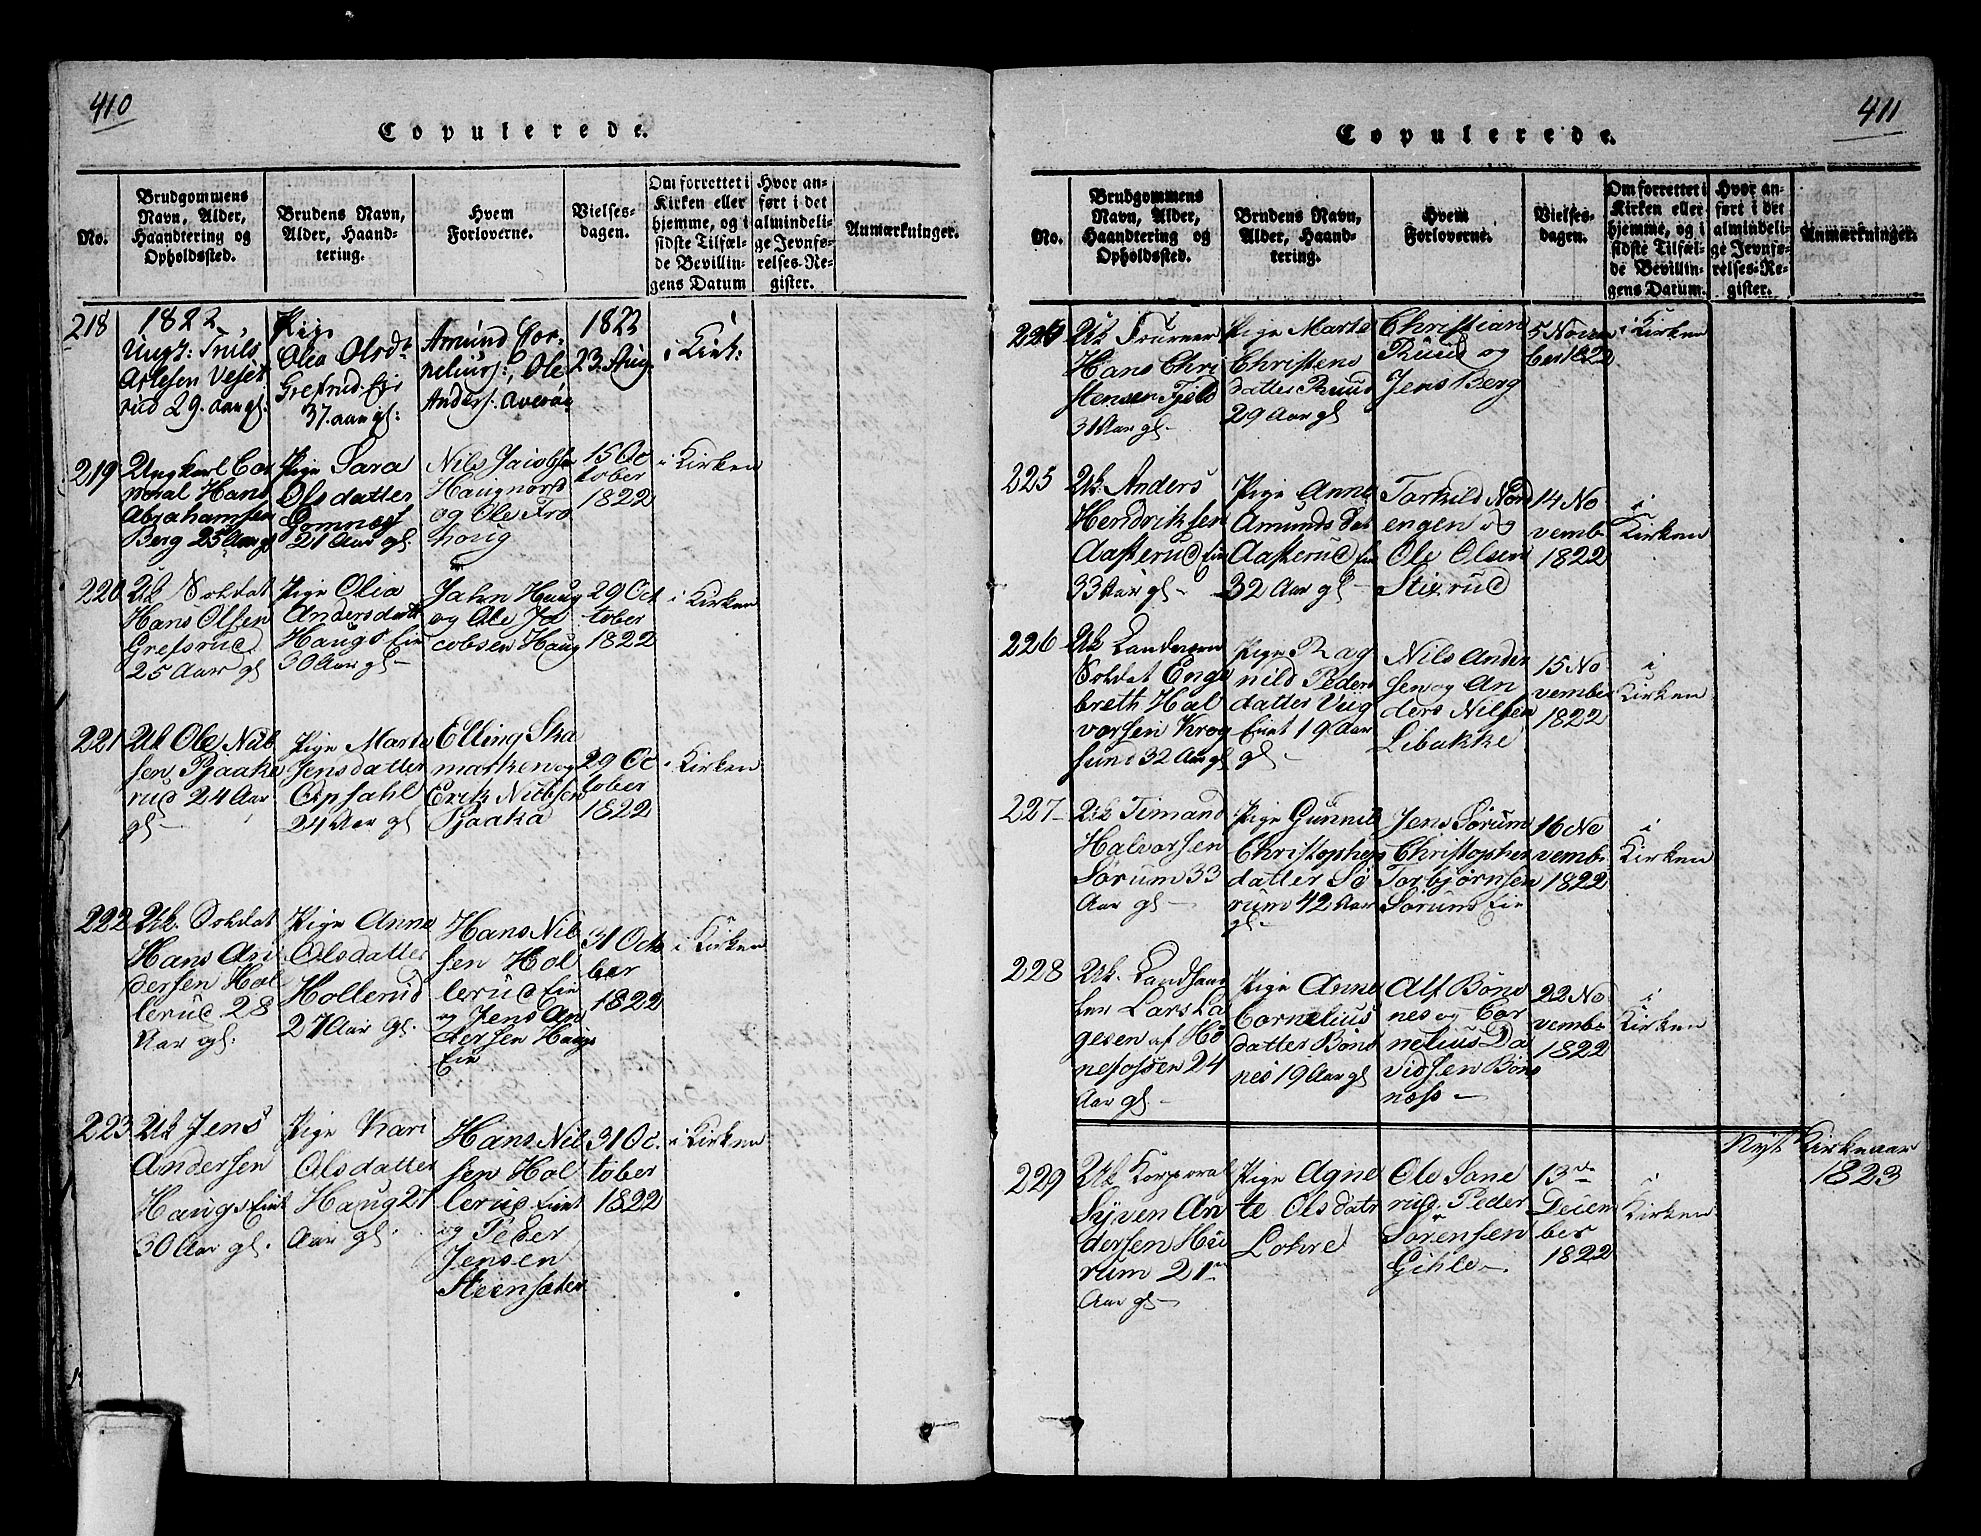 410
Copulerede.
No.
Brudgommens
Navn, Alder,
Haandtering og
Opholdssted.
Brudens Navn,
Alder, Haand-
tering.
Hvem
Forloverne.
Vielses-
dagen.
Om forrettet i
Kirken eller
hjemme, og i
sidste Tilfæl-
de Bevillin-
gens Datum
Hvor an-
ført i det
almindeli-
ge Jevnfø-
relses-Re-
gister.
Anmærkninger.
218
1822
Ungk: Truls
Aslesen
rud 29. aar gl.
Pige
Olea Olsdr
Grefsrud Eje
37. aar gl:
Amund Cor-
nelius:, Ole
Anders:
1822
23. Aug.
i Kirk:
219
Ungkarl Cor
poral Hans
Abrahamsen
Berg 25 Aar gl
Pige Sara
Olsdatter
Gomnæs
21 Aar gl.
Nils Jacobse
Haugnord
og Ole Fro
houg
15 Oc
tober
1822
i Kirken
220
Uk Soldat
Hans Olsen
Grefsrud
25 Aar gl
Pige Olia
Andersdatt
Haugs Eie
30 Aar gl-
John Haug
og Ole Ja
cobsen Haug
29 Oct
tober
1822
i Kirken
221
Uk Ole Nub
sen Pjaake
rud 24 Aar
gl-
Pige Marte
Jensdatter
Opsahl
24 Aar gl
Elling Ska
marken og
Erik Nubsen
Pjaaka
29 Oc
tober
1822
i Kirken
222
Uk. Soldat
Hans An
dersen Hol
lerud 28
Aar gl.
Pige Anne
Olsdatter
Hollerud
27 Aar gl.
Hans Nil
sen Hol
lerud Eie
og Jens An
dersen Haugs
Eie
31 Octo
ber
1822
i Kirken
223
Uk Jens
Andersen
Haugs Eiet
30 Aar gl.
Pige Kari
Olsdatter
Haug 27
Aar gl.
Hans Nil
sen Hol
lerud Eiet
og Peder
Jensen
Steensæter
31 Oc.
tober
1822
i Kirken
411
Copulerede.
No.
Brudgommens
Navn, Alder,
Haandtering og
Opholdssted.
Brudens Navn,
Alder, Haand-
tering.
Hvem
Forloverne.
Vielses-
dagen.
Om forrettet i
Kirken eller
hjemme, og i
sidste Tilfæl-
de Bevillin-
gens Datum.
Hvor an-
ført i det
almindeli-
ge Jevnfø-
relses-Re-
gister.
Anmærkninger.
Uk
Hans Chri
stensen Field
31 Aar gl-
Pige Marte
Christens
datter Ruud
29 Aar gl
Christian
Ruud og
Jens Berg
5 Novem
ber 1822
i Kirken
225
Uk. Anders
Hendriksen
Aasterud Eie
33 Aar gl-
Pige Anne
Amunds Dat
Aasterud Eie
32 Aar gl-
Torkild Nord
engen og
Ole Olsen
Stixrud
14 No
vembe
1822
i
Kirken
226
Uk Landeværn
Soldat Enge
breth Hal
vorsen Krog
sund 32 Aar gl
Pige Rag
nild Peders
datter Viig
Eiet 19 Aar
gl-
Nils Ander
sen og An
ders Nilsen
Libakke
15 No
vembe
1822
i
Kirken
227
Uk Timand
Halvorsen
Sørum 33
Aar gl-
Pige Gunnil
Christophers
datter Sø
rum 42 Aar
gl-
Jens Sørum
Christopher
Torbjørnsen
Sørums Eie
16 No
vembe
1822
i
Kirken
228
Uk. Landhand
ler Lars La
gesen af Hø
nefossen 24
Aar gl.-
Pige Anne
Cornelius
datter Bøns
nes 19 Aar gl
Alf Bøns
nes og Cor
nelius Da
vidsen Bøns
næss-
22 No
vembe
1822
i
Kirken
Nyt Kirkeaar
1823
229
Uk Korporal
Syven An
dersen Hu
rum 21
Aar gl-
Pige Agne
te Olsdatr
Lohre
Ole Sone
rud. Peder
Sørensen
Gihle-
13de
Decem
ber
1822
i
Kirken